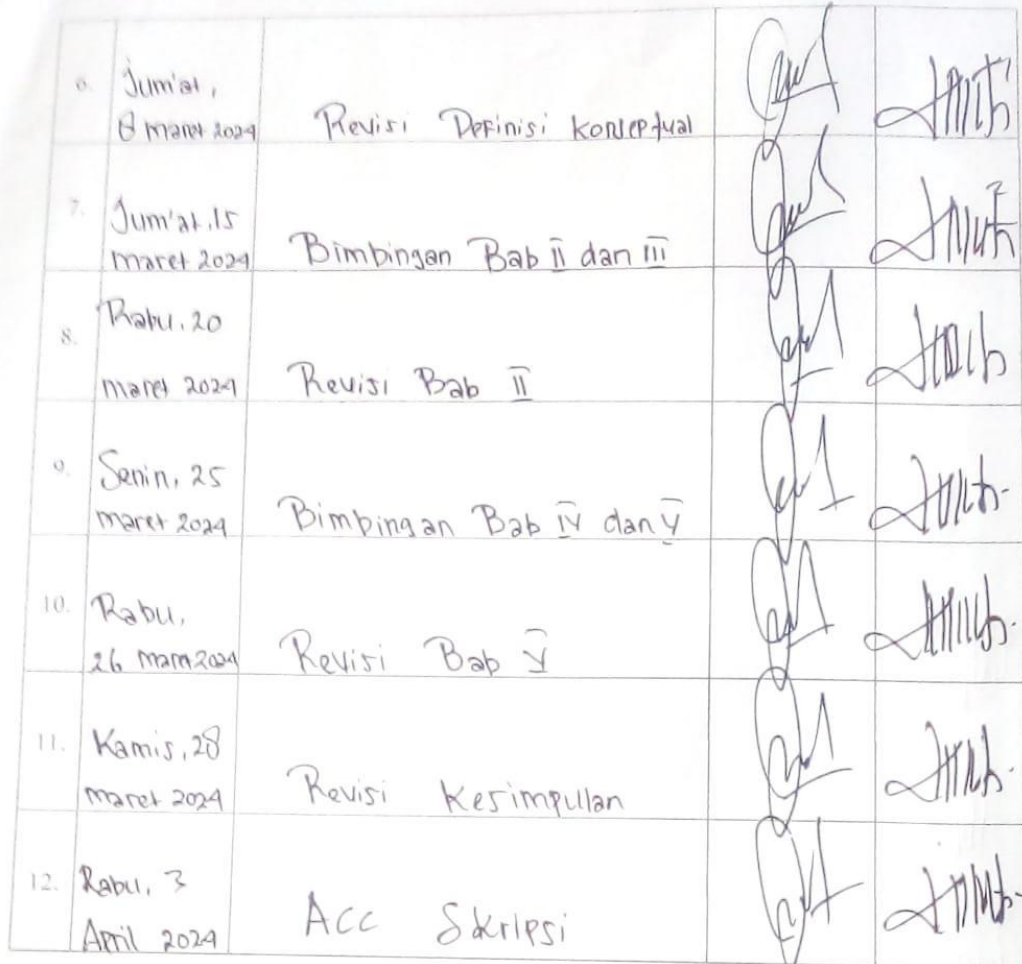 6. Jum'at,
8 maret 2024 Revisi Definisi konseptual
7. Jum'at, 15
maret 2024 Bimbingan Bab II dan III
8. Rabu, 20
maret 2024 Revisi Bab II
9. Senin, 25
maret 2024 Bimbingan Bab IV dan V
10. Rabu,
26 maret 2024 Revisi Bab V
11. Kamis, 28
maret 2024 Revisi Kesimpullan
12. Rabu, 3
April 2024 Acc Skripsi